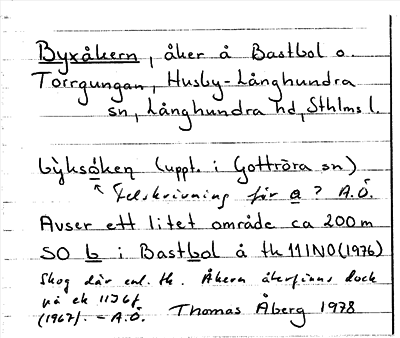 Byxåkern, åker å Bastbol o.
Torrgungan, Husby-Långhundra
sn, Långhundra hd, Sthlms l.
bỳksåkeṇ (uppt. i Gottröra sn)
↖ Felskrivning för a? A.Ö.
Avser ett litet område ca 200 m
SO b i Bastbol å tk 11I NO (1976)
Skog där enl. tk. Åkern återfinns dock
på ek 11I6f
(1967). - A.Ö. Thomas Åberg 1978